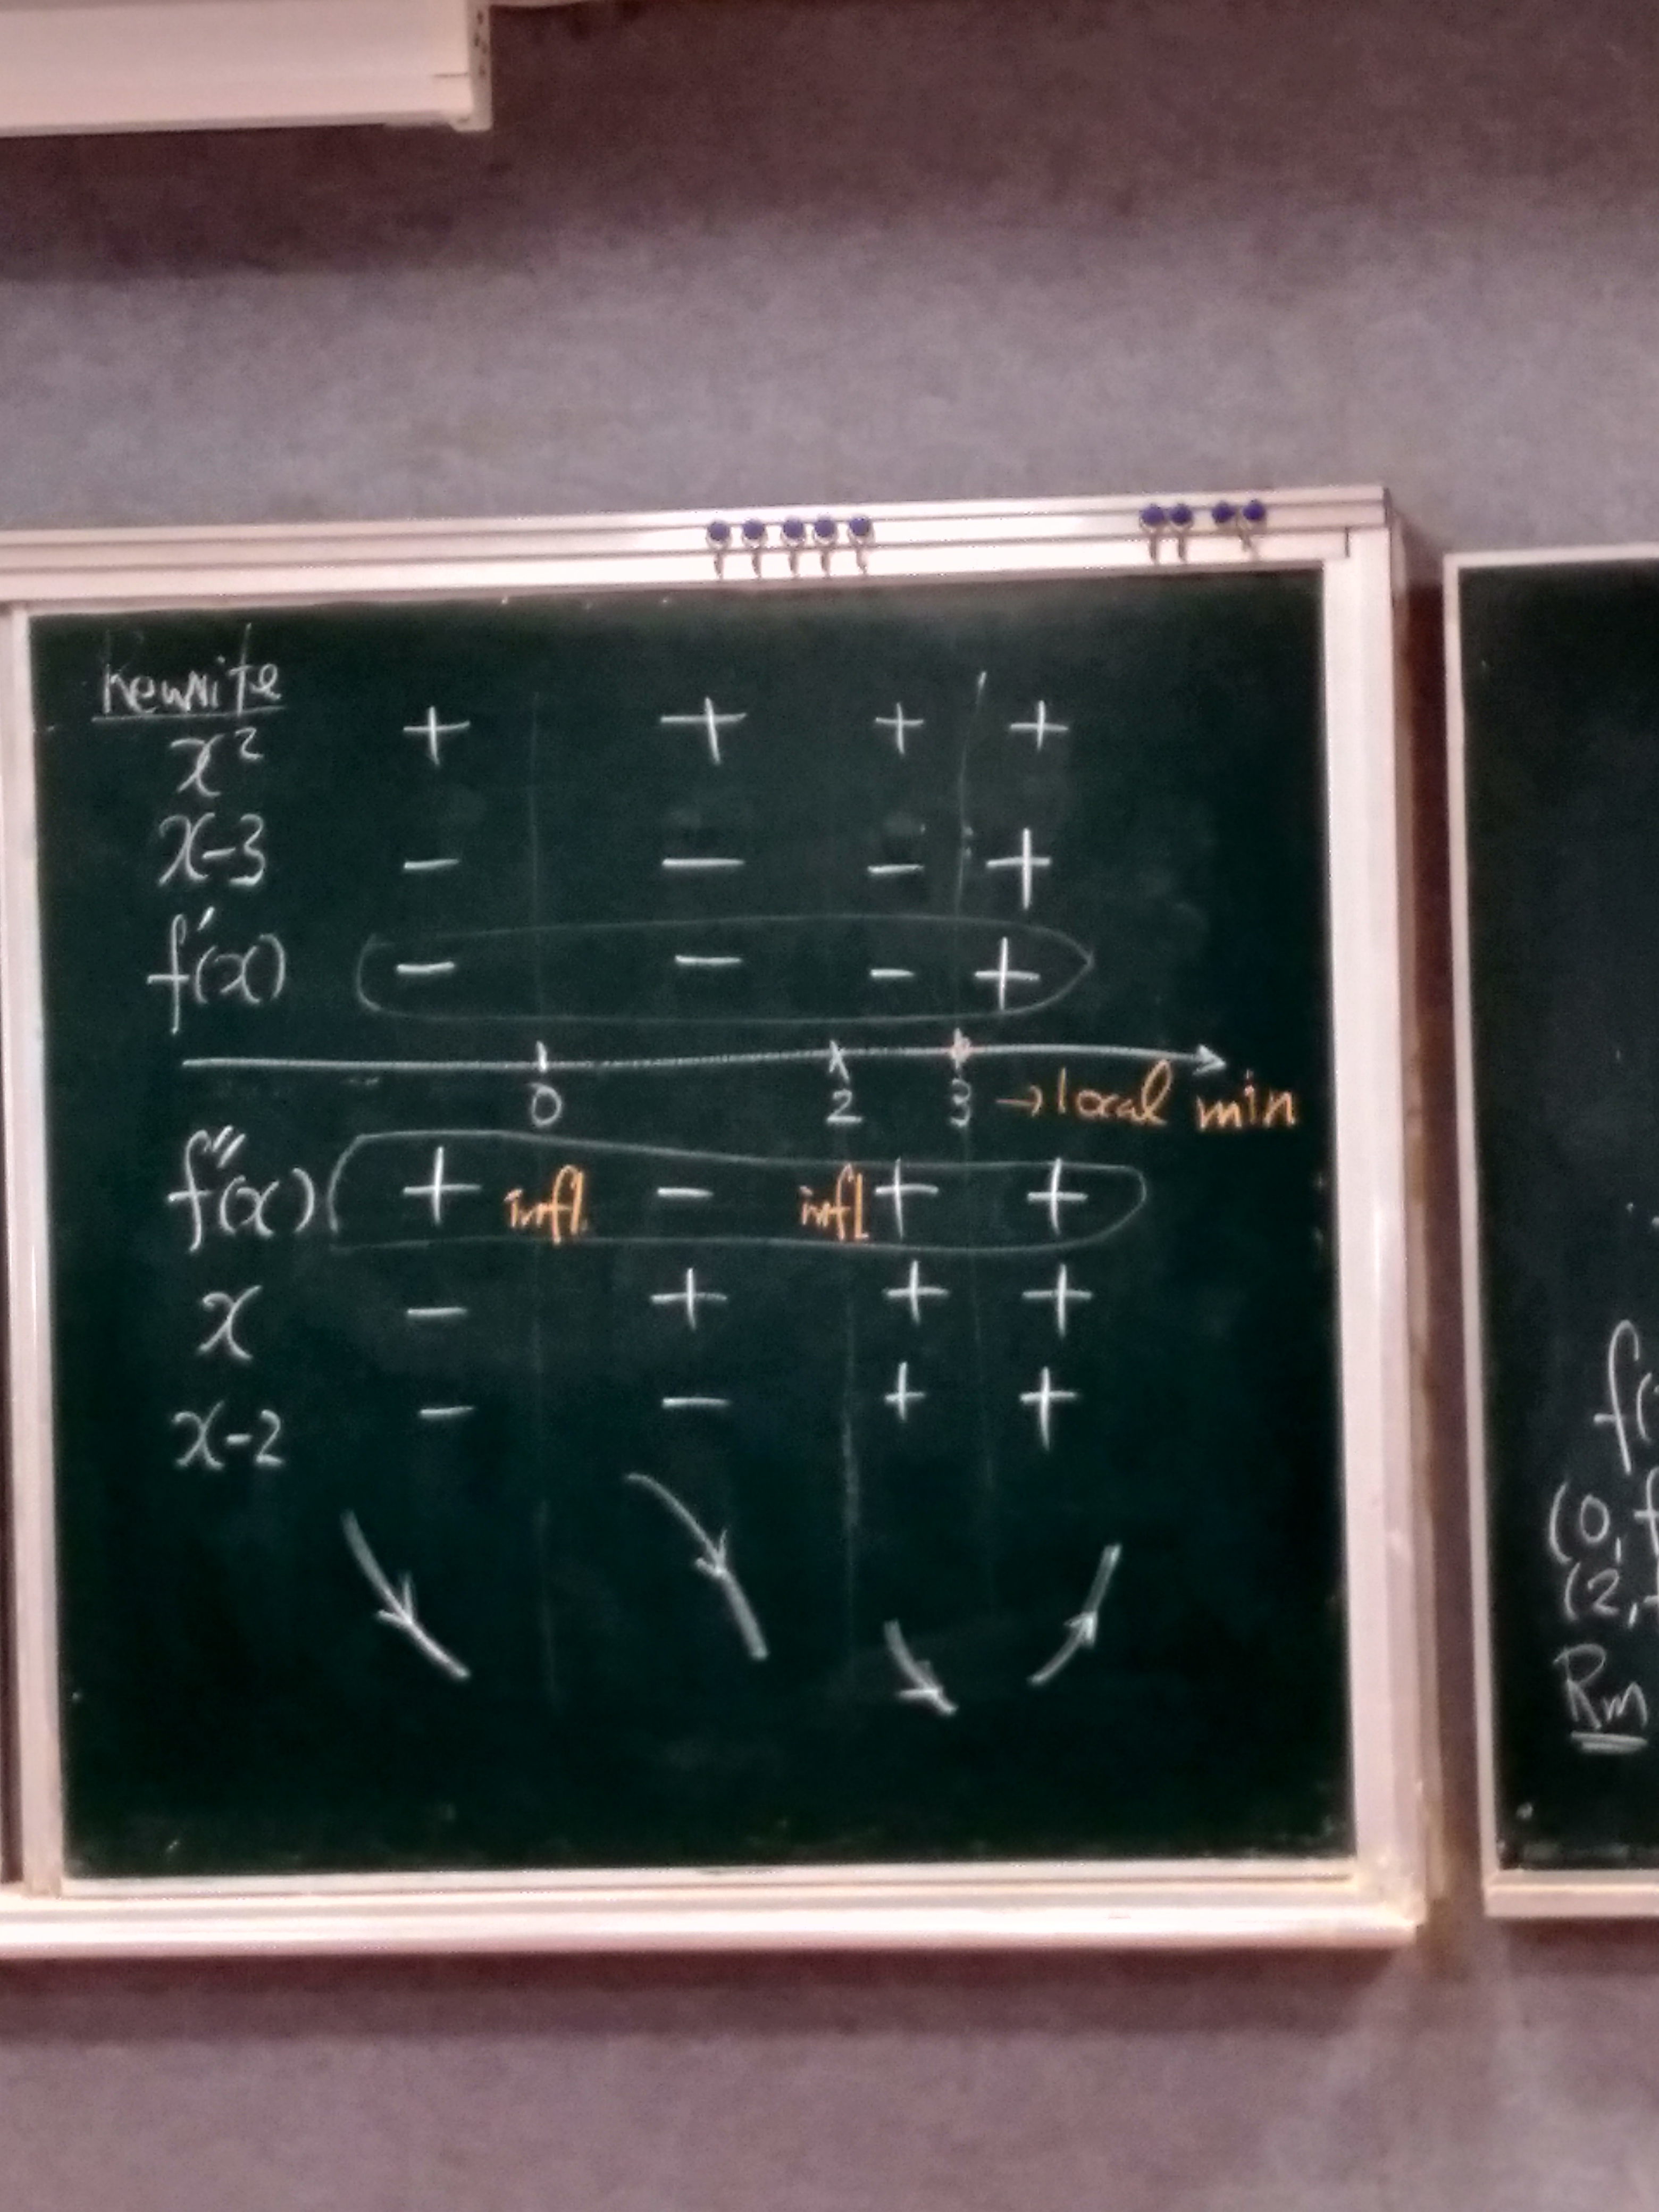 Rewrite
x² + + + +
x-3 - - - +
f'(x) - - - +
0 2 3 → local min
f''(x) + infl - infl + +
x - + + +
x-2 - - + +
f(
(0, f
(2, f
Rm